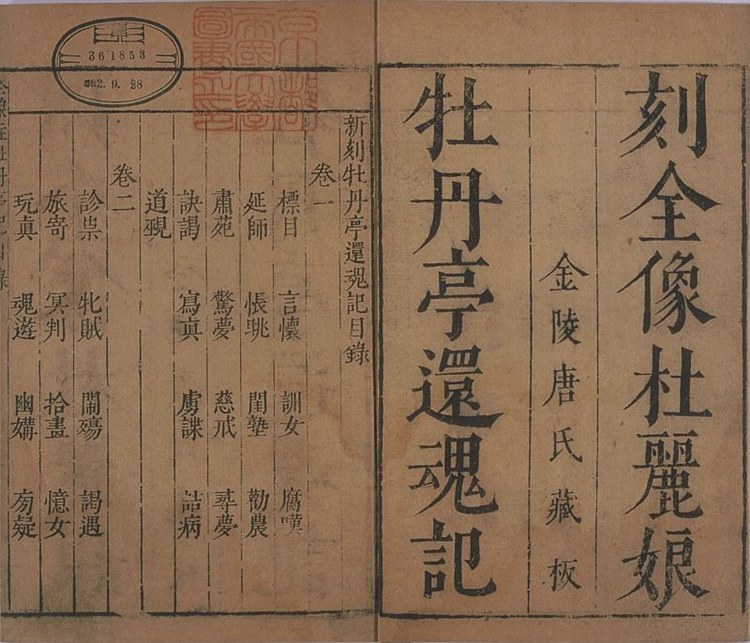 刻全像杜麗娘
金陵唐氏藏板
牡丹亭還魂記
新刻牡丹亭還魂記目錄
卷一
標目 言懷 訓女 腐嘆
延師 悵眺 閨塾 勸農
肅苑 驚夢 慈戒 尋夢
訣謁 寫真 虜諜 詰病
道覡
卷二
診祟 牝賊 鬧殤 謁遇
旅寄 冥判 拾畫 憶女
玩真 魂遊 幽媾 旁疑
361853
2. 9. 28